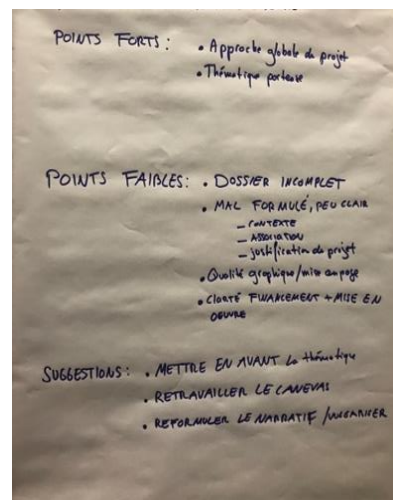 POINTS FORTS : • Approche globale du projet
• Thématique porteuse
POINTS FAIBLES : • DOSSIER INCOMPLET
• MAL FORMULÉ, PEU CLAIR
– CONTEXTE
– ASSOCIATION
– justification du projet
• Qualité graphique/mise en page
• CLARTÉ FINANCEMENT + MISE EN
OEUVRE
SUGGESTIONS : • METTRE EN AVANT la thématique
• RETRAVAILLER LE CANEVAS
• REFORMULER LE NARRATIF /